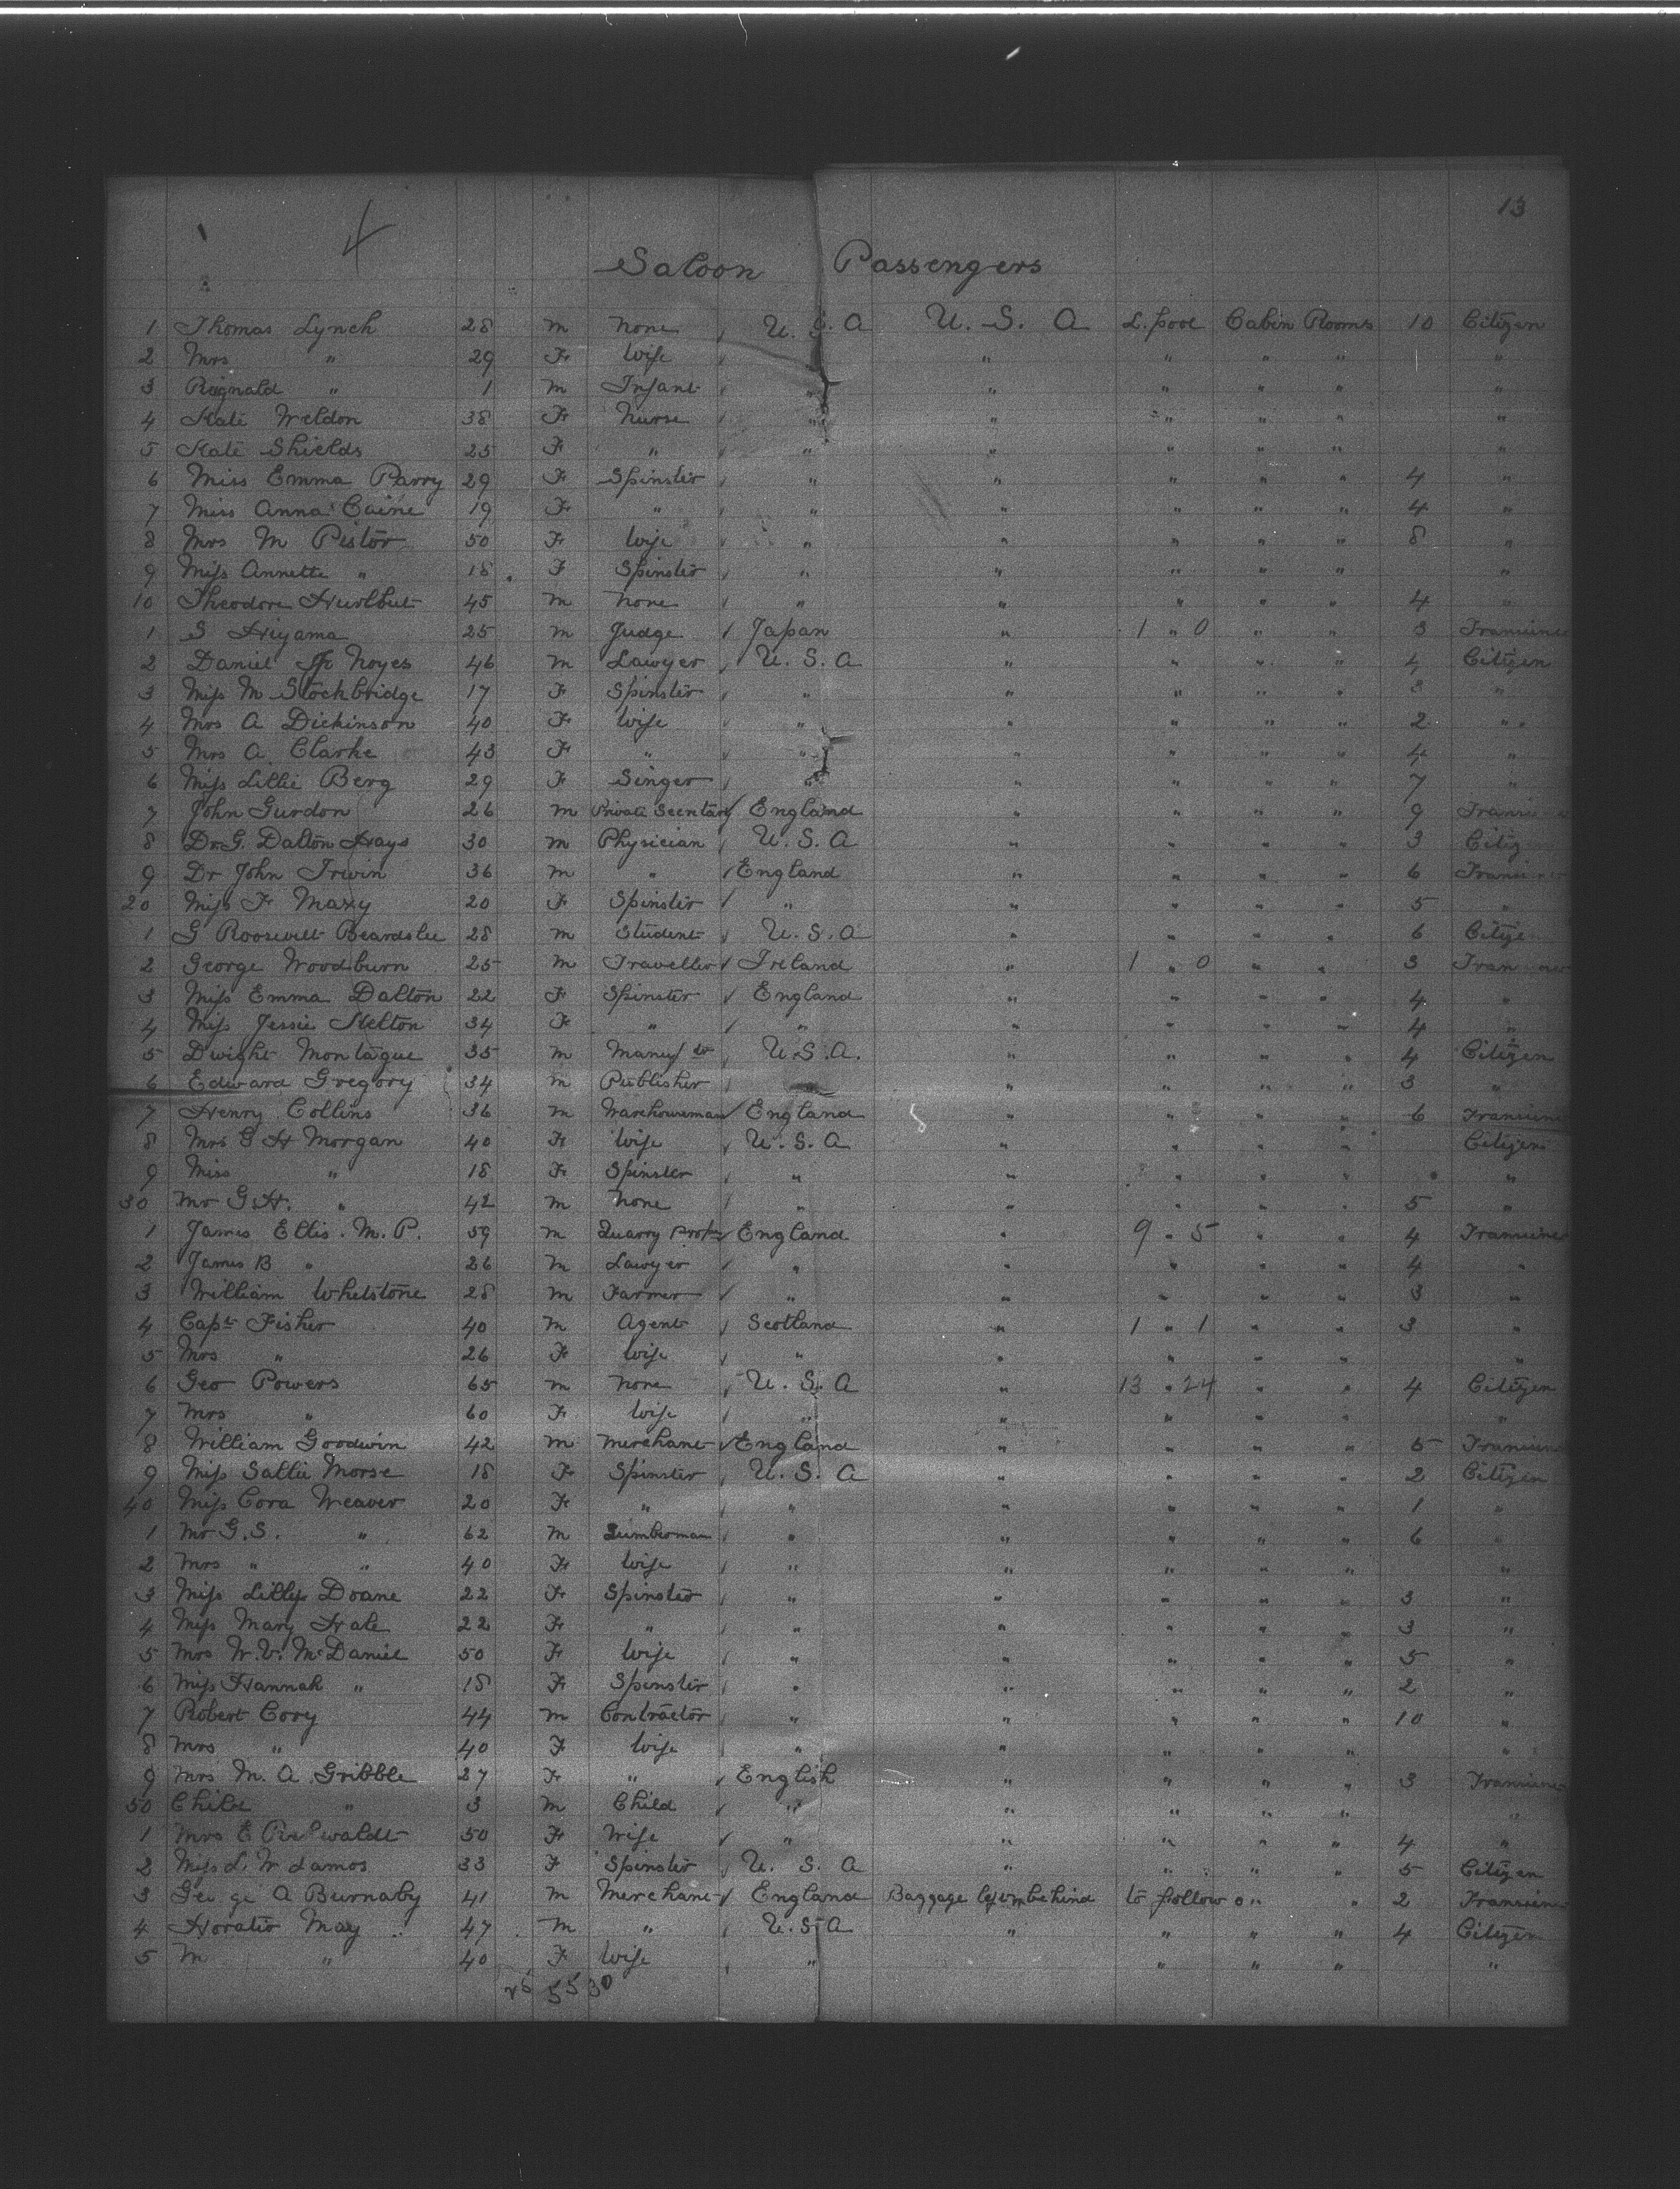 13
4
Saloon Passengers
1 Thomas Lynch 28 M None U.S.A U.S.A L.pool Cabin Rooms 10 Citizen
2 Mrs " 29 F Wife " " " " " "
3 Reginald " 1 M Infant " " " " " "
4 Kate Weldon 38 F Nurse " " " " " "
5 Kate Shields 25 F " " " " " " "
6 Miss Emma Parry 29 F Spinster " " " " " 4 "
7 Miss Anna Caine 19 F " " " " " " 4 "
8 Mrs M Pistor 50 F Wife " " " " " 8 "
9 Miss Annette " 18 F Spinster " " " " " "
10 Theodore Hurlbut 45 M None " " " " " 4 "
1 S Hiyama 25 M Judge Japan " 1 " 0 " " 3
2 Daniel Noyes 46 M Lawyer U.S.A " " " " 4 Citizen
3 Miss M Stockbridge 17 F Spinster " " " " " 3 "
4 Mrs A Dickinson 40 F Wife " " " " " 2 "
5 Mrs A Clarke 43 F " " " " " " 4 "
6 Miss Lillie Berg 29 F Singer " " " " " 7 "
7 John Gurdon 26 M Private Secretary England " " " " 9
8 Dr G. Dalton Hays 30 M Physician U.S.A " " " " 3
9 Dr John Irwin 36 M " England " " " " 6
20 Miss F Maxy 20 F Spinster " " " " " 5 "
1 G Roosevelt Beardslee 28 M Student U.S.A " " " " 6
2 George Woodburn 25 M Traveller Ireland " 1 " 0 " " 3
3 Miss Emma Dalton 22 F Spinster England " " " " 4 "
4 Miss Jessie Skelton 34 F " " " " " " 4 "
5 Dwight Montague 35 M U.S.A. " " " " 4 Citizen
6 Edward Gregory 34 M Publisher " " " " " 3 "
7 Henry Collins 36 M Warehouseman England " " " " 6
8 Mrs G H Morgan 40 F Wife U.S.A " " " " Citizen
9 Miss " 18 F Spinster " " " " " "
30 Mr G.H. " 42 M None " " " " " 5 "
1 James Ellis. M.P. 59 M Quarry England " 9 " 5 " " 4
2 James B " 26 M Lawyer " " " " " 4 "
3 William Whetstone 28 M Farmer " " " " " 3 "
4 Capt Fisher 40 M Agent Scotland " 1 " 1 " " 3 "
5 Mrs " 26 F Wife " " " " " "
6 Geo Powers 65 M None U.S.A " 13 " 24 " " 4 Citizen
7 Mrs " 60 F Wife " " " " " "
8 William Goodwin 42 M Merchant England " " " " 5
9 Miss Sallie Morse 18 F Spinster U.S.A " " " " 2 Citizen
40 Miss Cora Weaver 20 F " " " " " " 1 "
1 Mr G.S. " 62 M Lumberman " " " " " 6 "
2 Mrs " " 40 F Wife " " " " " "
3 Miss Lilly Doane 22 F Spinster " " " " " 3 "
4 Miss Mary Hale 22 F " " " " " " 3 "
5 Mrs W.V. McDaniel 50 F Wife " " " " " 5 "
6 Miss Hannah " 18 F Spinster " " " " " 2 "
7 Robert Cory 44 M Contractor " " " " " 10 "
8 Mrs " 40 F Wife " " " " " "
9 Mrs M. A Gribble 27 F " English " " " " 3
50 Child " 3 M Child " " " " " "
1 Mrs E 50 F Wife " " " " " 4 "
2 Miss L. W Lamos 33 F Spinster U.S.A " " " " 5 Citizen
3 George A Burnaby 41 M Merchant England Baggage behind to follow " " 2
4 Horatio May 47 M " U.S.A " " " " 4 Citizen
5 M " 40 F Wife " " " " "
25 55 30